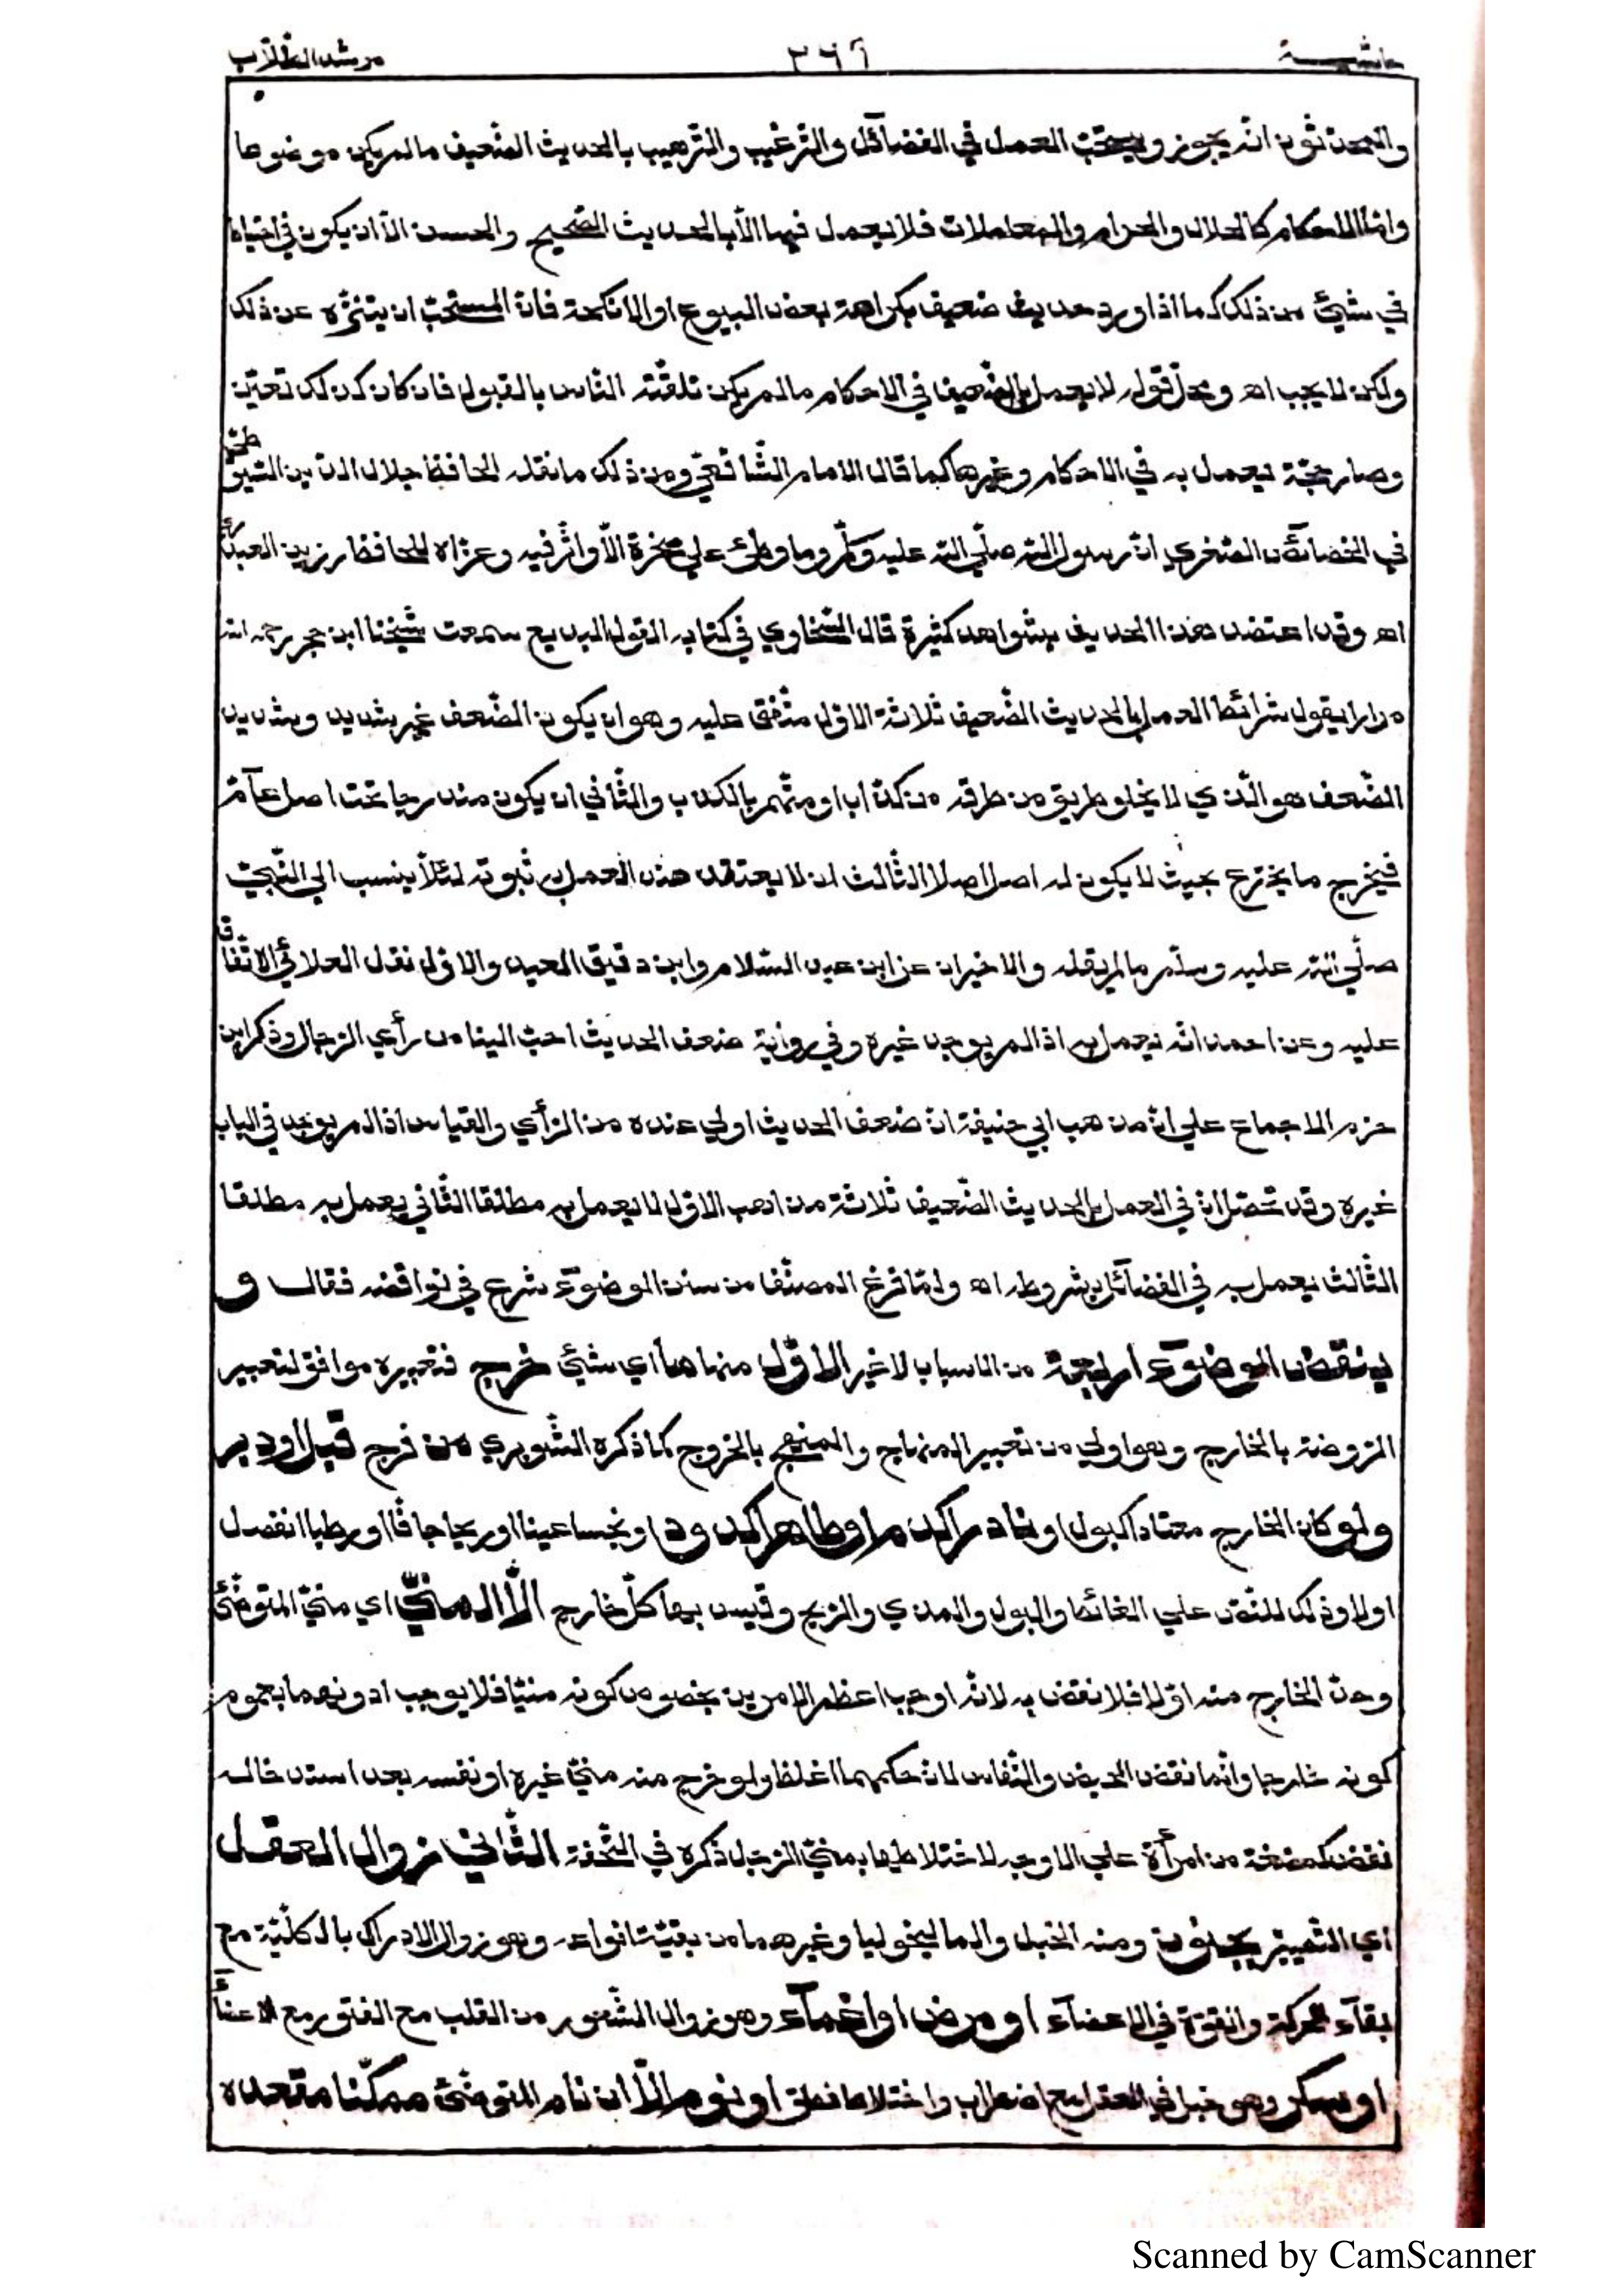 حاشية ٢٦٦ مرشد الطّلّاب
والمحدّثون انّه يجوز ويستحبّ العمل في الفضآئل والتّرغيب والتّرهيب بالحديث الضّعيف مالم يكن موضوعا
وامّا الاحكام كالحلال والحرام والمعاملات فلا يعمل فيها الّا بالحديث الصّحيح والحسن الّا ان يكون في احتياط
في شيئ من ذلك كما اذا ورد حديث ضعيف بكراهة بعض البيوع او الانكحة فانّ المستحبّ ان يتنزّه عن ذلك
ولكن لا يجب اه ومحلّ قوله لا يعمل بالضّعيف في الاحكام مالم يكن تلقّته النّاس بالقبول فان كان كذلك تعيّن
وصار حجّة يعمل به في الاحكام وغيرها كما قال الامام الشّافعيّ ومن ذلك مانقله الحافظ جلال الدّين السّيوطيّ
في الخصائص الصّغري انّ رسول اللّه صلّي اللّه عليه وسلّم وما وطئ علي صخرة الّا واثّر فيه وعزاه للحافظ رزين العبدريّ
اه وقد اعتضد هذا الحديث بشواهد كثيرة قال السّخاوي في كتابه القول البديع سمعت شيخنا ابن حجر رحمه اللّه
مرارا يقول شرائط العمل بالحديث الضّعيف ثلاثة الاوّل متّفق عليه وهو ان يكون الضّعف غير شديد وشديد
الضّعف هو الّذي لا يخلو طريق من طرقه من كذّاب او متّهم بالكذب والثّاني ان يكون مندرجا تحت اصل عآمّ
فيخرج ما يخترع بحيث لا يكون له اصل اصلا الثّالث ان لا يعتقد عند العمل به ثبوته لئلّا ينسب الي النّبيّ
صلّي اللّه عليه وسلّم مالم يقله والاخيران عن ابن عبد السّلام وابن دقيق العيد والاوّل نقل العلائيّ الاتّفاق
عليه وعن احمد انّه يعمل به اذا لم يوجد غيره وفي رواية ضعف الحديث احبّ الينا من رأي الرّجال وذكر ابن
حزم الاجماع علي انّ مذهب ابي حنيفة انّ ضعف الحديث اولي عنده من الرّأي والقياس اذا لم يوجد في الباب
غيره وقد تحصّل انّ في العمل بالحديث الضّعيف ثلاثة مذاهب الاوّل لا يعمل به مطلقا الثّاني يعمل به مطلقا
الثّالث يعمل به في الفضآئل بشروطه اه ولمّا فرغ المصنّف من سنن الوضوء شرع في نواقضه فقال و
ينقض الوضوء اربعة من الاسباب لا غير الاوّل منها ما اي شيئ خرج فتعبيره موافق لتعبير
الرّوضة بالخارج وهو اولي من تعبير المنهاج والمنهج بالخروج كما ذكره الشّوبري من فرج قبل او دبر
ولو كان الخارج معتادا كبول او نادرا كدم او طاهرا كدود او نجسا عينا او ريحا جافّا او رطبا انفصل
اولا وذلك للنّصّ علي الغائط والبول والمذي والرّيح وقيس بها كلّ خارج الّا المنيّ اي منيّ المتوضّئ
وحده الخارج منه اوّلا فلا نقض به لانّه اوجب اعظم الامرين بخصوص كونه منيّا فلا يوجب ادونهما بعموم
كونه خارجا وانّما نقض الحيض والنّفاس لانّ حكمهما اغلظ ولو خرج منه منيّ غيره او نفسه بعد استدخاله
نقض كمضغة من امرأة علي الاوجه لاختلاطها بمنيّ الرّجل ذكره في التّحفة الثّاني زوال العقل
اي التّمييز بجنون ومنه الخبل والماليخوليا وغيرهما من بقيّة انواعه وهو زوال الادراك بالكلّيّة مع
بقآء الحركة والقوّة في الاعضآء او مرض او اغمآء وهو زوال الشّعور من القلب مع الفتور مع الاعضآء
او سكر وهو خبل في العقل مع اضطراب واختلاط نطق او نوم الّا ان نام المتوضّئ ممكّنا مقعده
Scanned by CamScanner